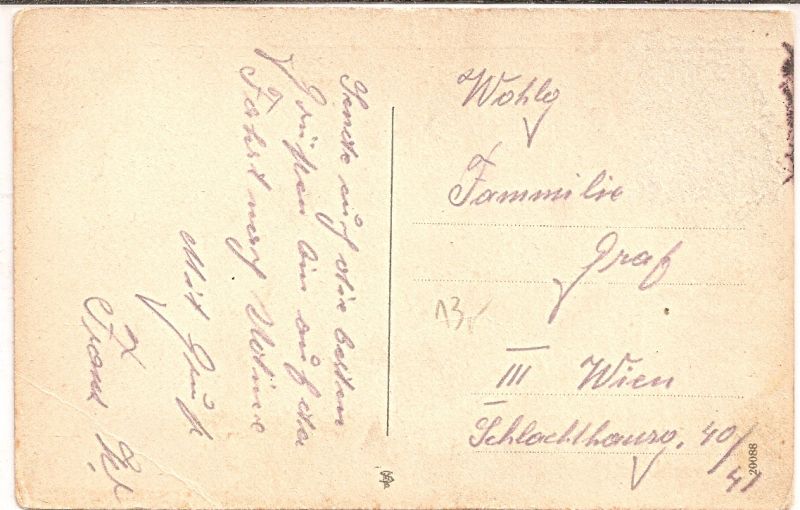 Sende euch die besten
Grüßen bin auf der
Fahrt nach
Mit Gruß
Franz
Wohlg
Fammilie
Graf
III Wien
Schlachthausg. 40/
41
13
20088